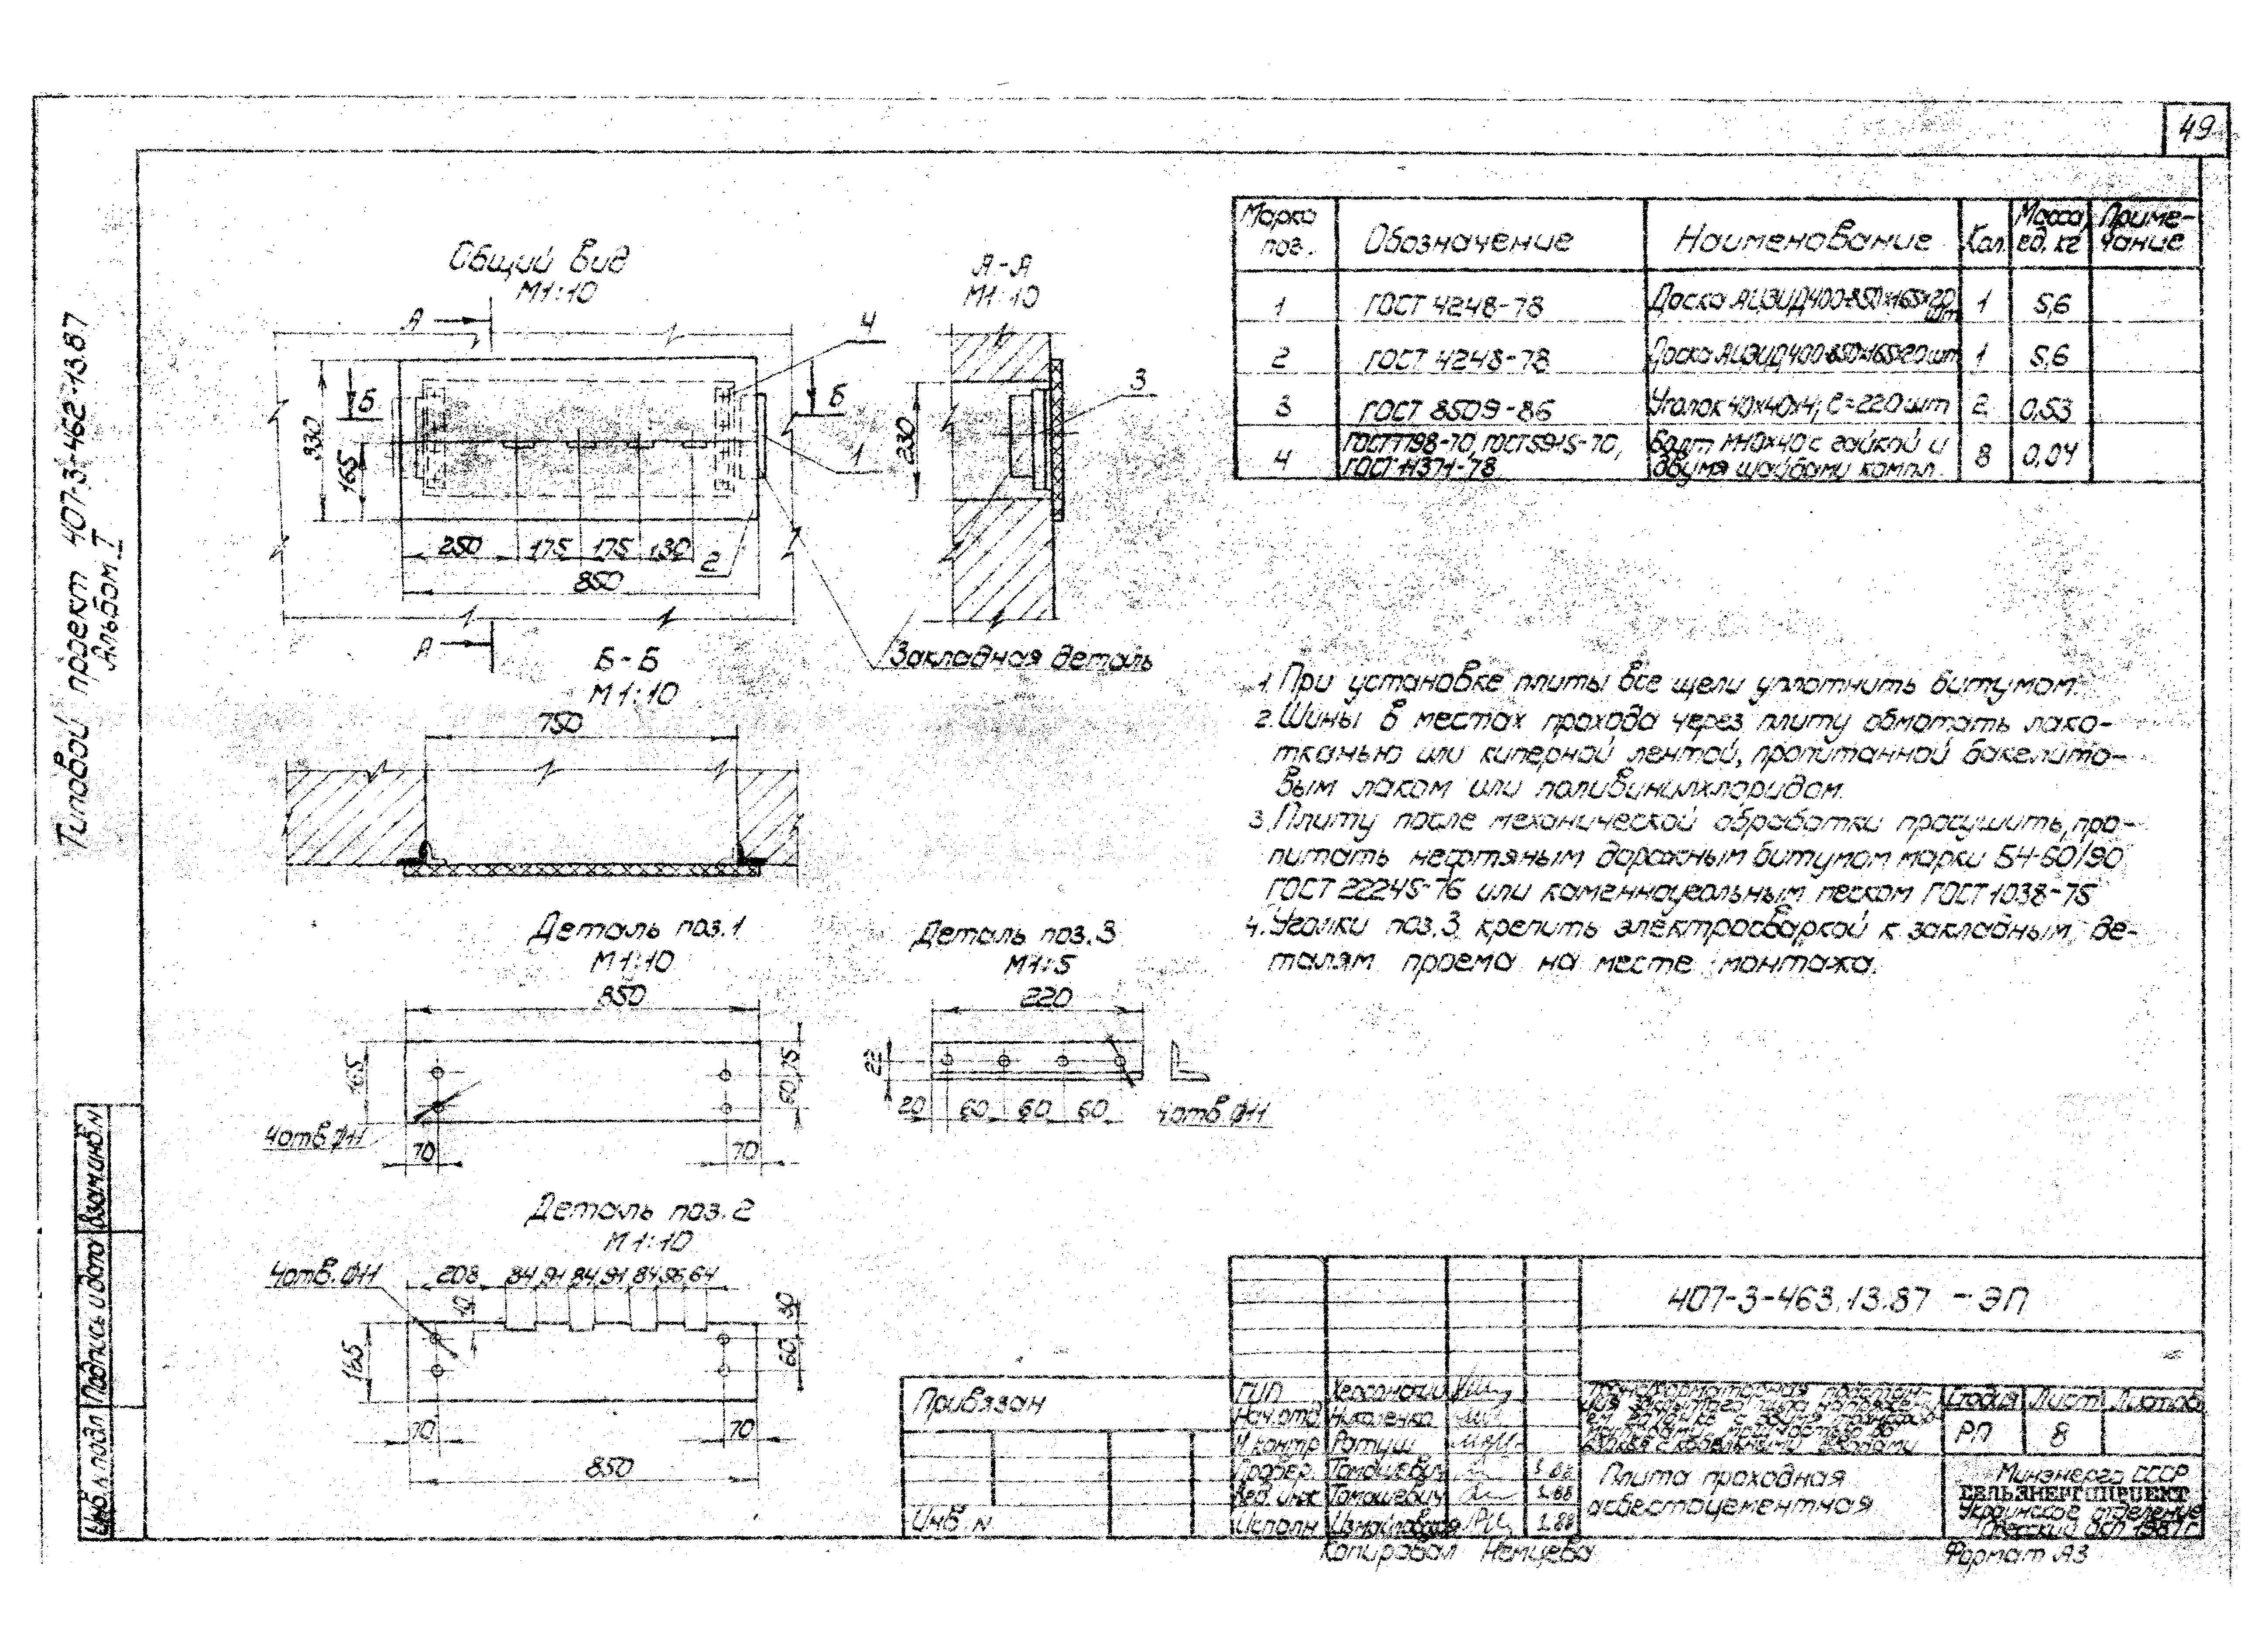 49
Типовой проект 407-3-462-13.87
Альбом I
Общий вид
М1:10
А
Б
Б
4
3
1
2
330
165
250 175 175 130
850
А
А-А
М1:10
230
Закладная деталь
Б-Б
М1:10
750
Деталь поз.1
М1:10
850
165
60 75
4отв.Ø11
70
70
Деталь поз.3
М1:5
220
22
20 60 60 60
4отв.Ø11
Деталь поз.2
М1:10
4отв.Ø11
208 84 91 84 91 84 96 64
10
30
60
165
70
70
850
Марка поз. Обозначение Наименование Кол. Масса ед. кг Приме-чание
1 ГОСТ 4248-78 Доска АЦЭИД400-850×165×20 шт 1 5,6
2 ГОСТ 4248-78 Доска АЦЭИД400-850×165×20 шт 1 5,6
3 ГОСТ 8509-86 Уголок 40×40×4, ℓ=220 шт 2 0,53
4 ГОСТ7798-70, ГОСТ5915-70, ГОСТ11371-78 Болт М10×40 с гайкой и двумя шайбами компл. 8 0,04
1. При установке плиты все щели уплотнить битумом.
2. Шины в местах прохода через плиту обмотать лако-
тканью или киперной лентой, пропитанной бакелито-
вым лаком или поливинилхлоридом.
3. Плиту после механической обработки просушить, про-
питать нефтяным дорожным битумом марки БН-60/90
ГОСТ 22245-76 или каменноугольным песком ГОСТ 1038-75
4. Уголки поз.3 крепить электросваркой к закладным де-
талям проема на месте монтажа.
407-3-463.13.87 -ЭП
Привязан
Инв. N
ГИП Херсонский
Нач.отд Николенко
Н.контр Ратуш
Провер. Томашевич 3.88
Вед. инж Томашевич 3.88
Исполн Измайловская 3.88
Трансформаторная подстан-
ция закрытого типа напряжени-
ем
с кабельными вводами
Стадия Лист Листов
РП 8
Плита проходная
асбестоцементная
Минэнерго СССР
СЕЛЬЭНЕРГОПРОЕКТ
Украинское отделение
1987 г.
Копировал Немцева
Формат А3
Инв.N подл
Подпись и дата
Взам.инв.N